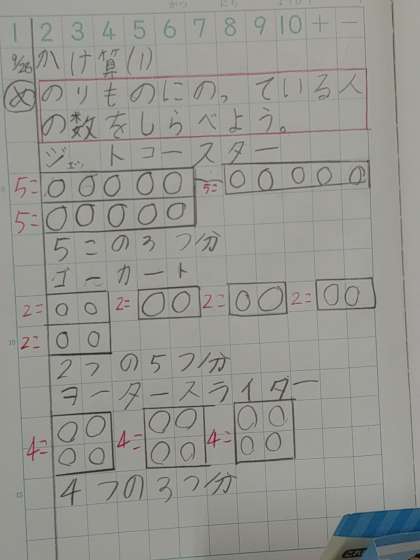 1 2 3 4 5 6 7 8 9 10 + -
9/26 かけ算(1)
め のりものにのっている人
の数をしらべよう。
ジェットコースター
5= 5=
5=
5この3つ分
ゴーカート
2= 2= 2= 2=
2=
2つの5つ分
ヲータースライダー
4= 4= 4=
4つの3つ分